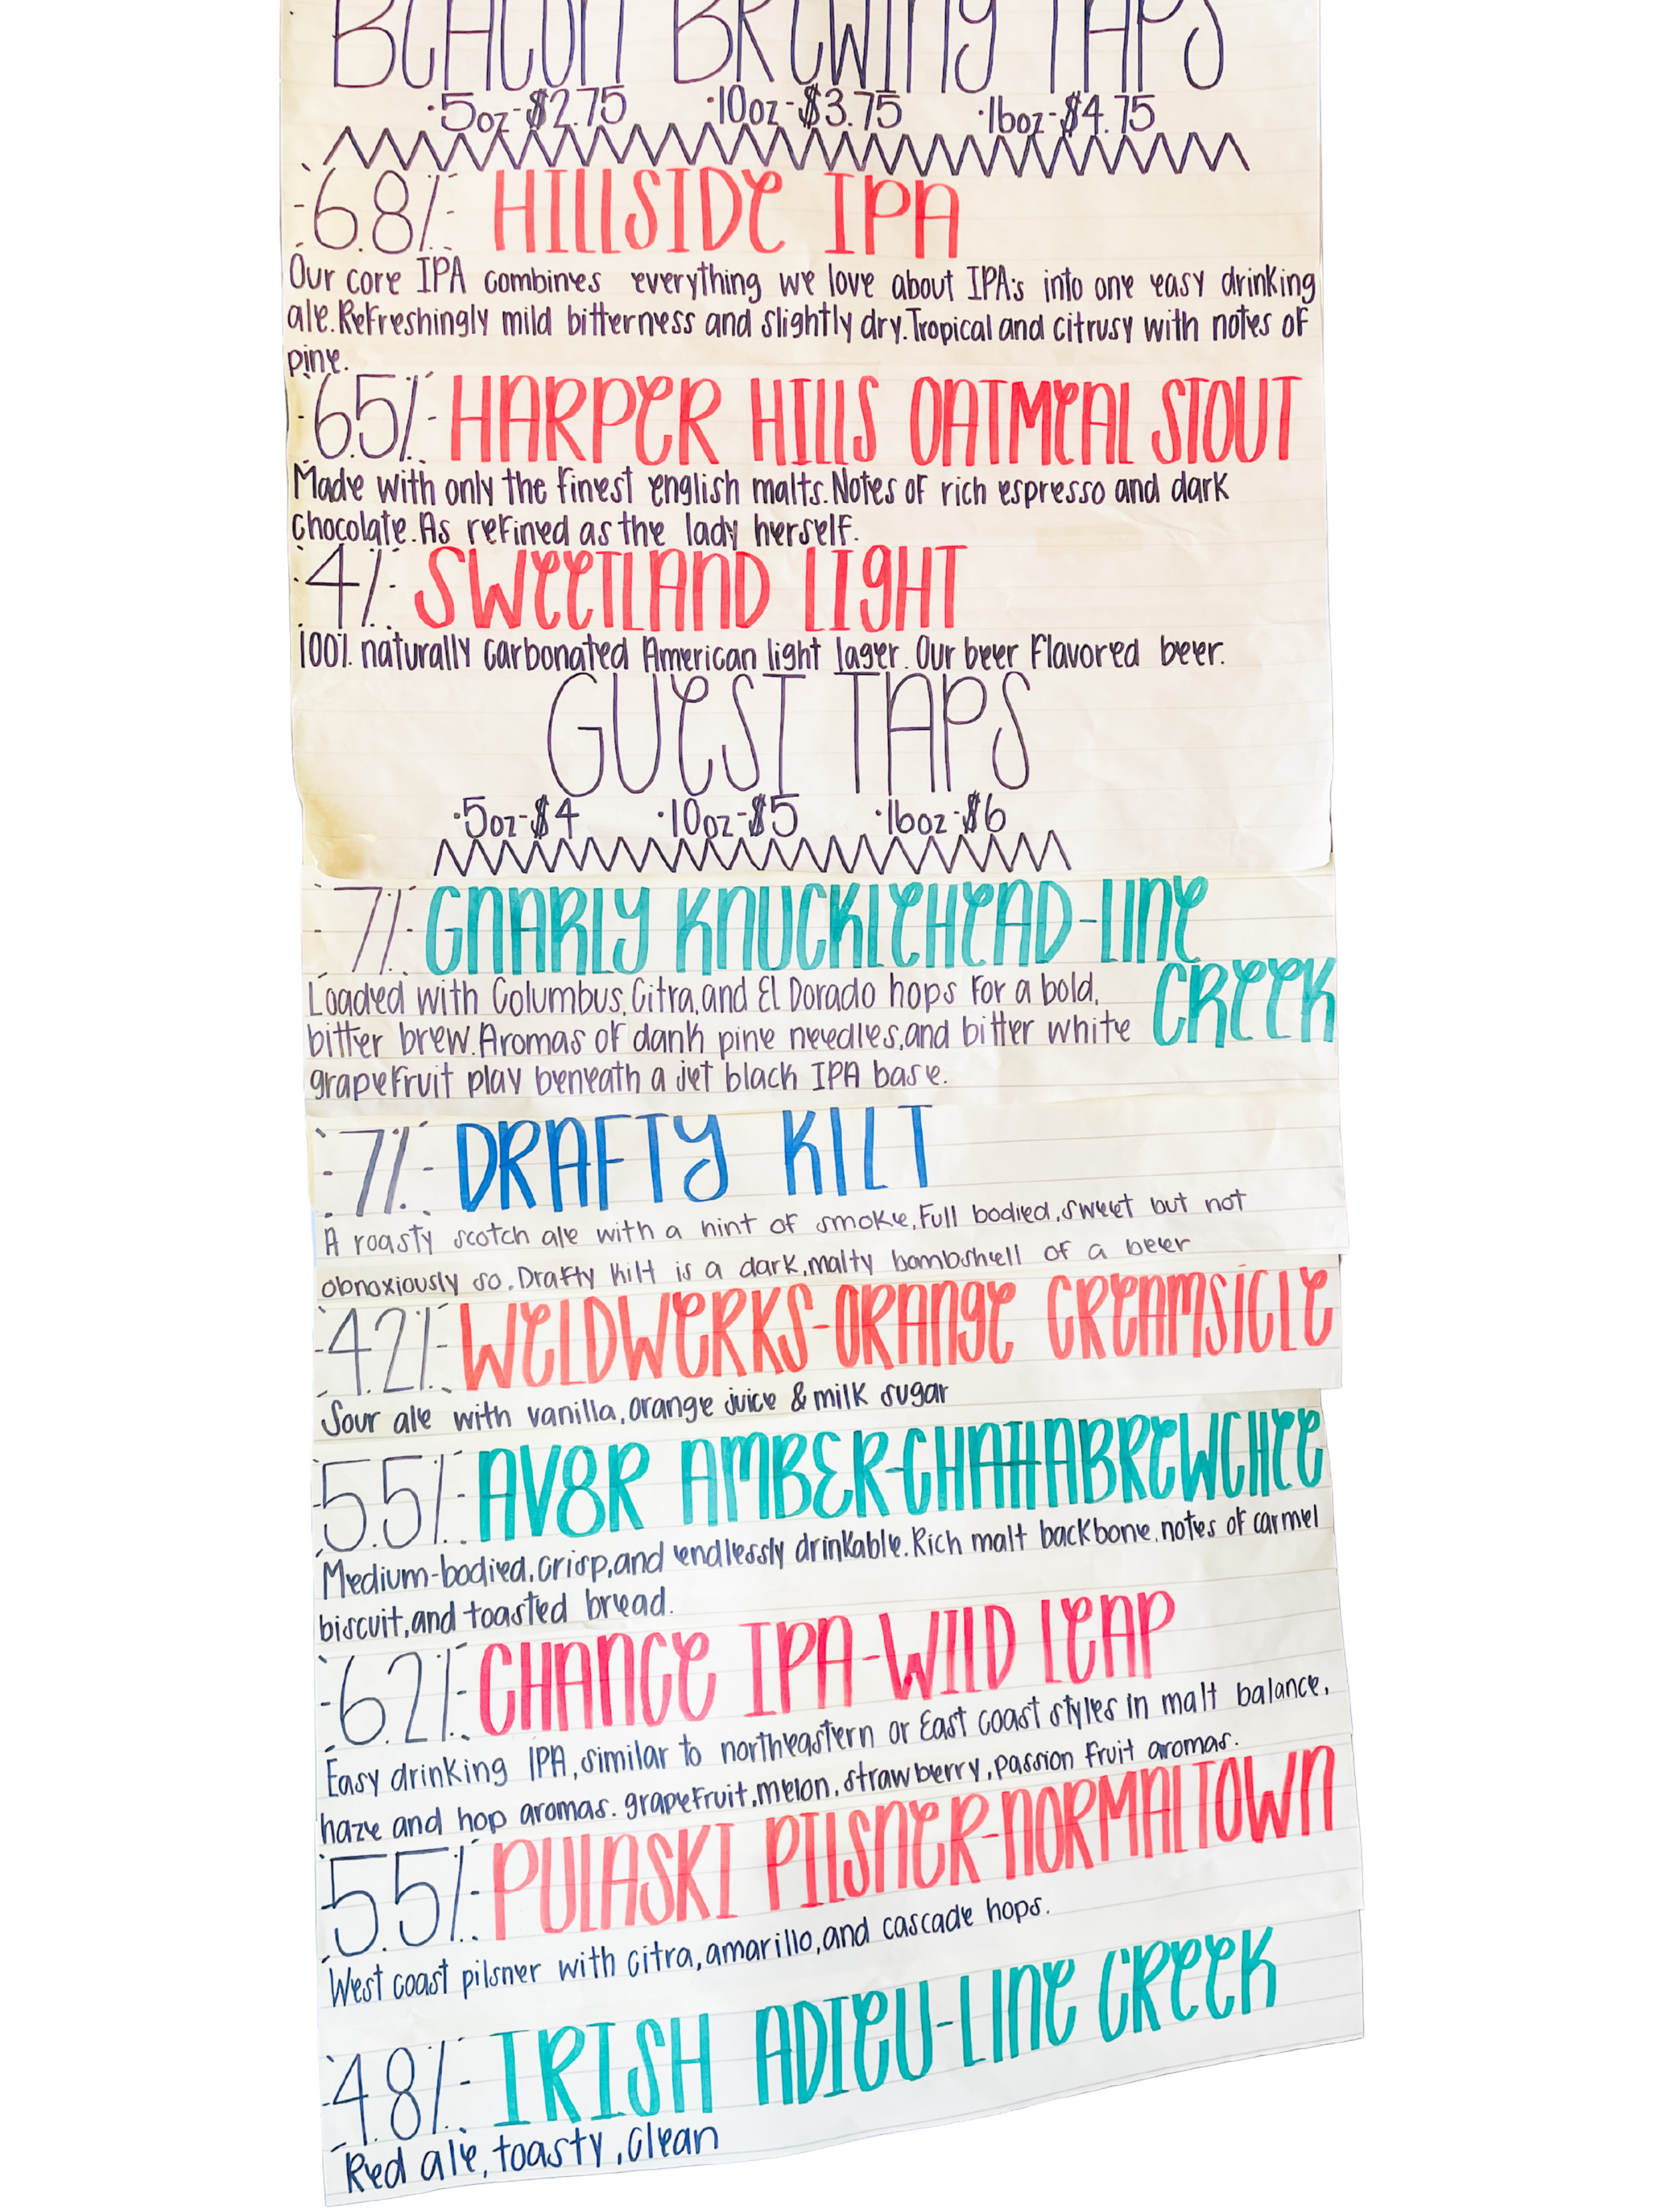 BEACON BREWING TAPS
·5oz-$2.75 ·10oz-$3.75 ·16oz-$4.75
6.8% HILLSIDE IPA
Our core IPA combines everything we love about IPA's into one easy drinking
ale. Refreshingly mild bitterness and slightly dry. Tropical and citrusy with notes of
pine.
6.5% HARPER HILLS OATMEAL STOUT
Made with only the finest english malts. Notes of rich espresso and dark
chocolate. As refined as the lady herself.
4% SWEETLAND LIGHT
100% naturally carbonated American light lager. Our beer flavored beer.
GUEST TAPS
·5oz-$4 ·10oz-$5 ·16oz-$6
7% GNARLY KNUCKLEHEAD-LINE
CREEK
Loaded with Columbus, Citra, and El Dorado hops for a bold,
bitter brew. Aromas of dank pine needles, and bitter white
grapefruit play beneath a jet black IPA base.
7% DRAFTY KILT
A roasty scotch ale with a hint of smoke, Full bodied, sweet but not
obnoxiously so. Drafty Kilt is a dark, malty bombshell of a beer
4.2% WELDWERKS-ORANGE CREAMSICLE
Sour ale with vanilla, orange juice & milk sugar
5.5% AV8R AMBER-CHATTABREWCHEE
Medium-bodied, crisp, and endlessly drinkable. Rich malt backbone, notes of carmel
biscuit, and toasted bread.
6.2% CHANCE IPA-WILD LEAP
Easy drinking IPA, similar to northeastern or East coast styles in malt balance,
haze and hop aromas. grapefruit, melon, strawberry, passion fruit aromas.
5.5% PULASKI PILSNER-NORMALTOWN
West coast pilsner with citra, amarillo, and cascade hops.
4.8% IRISH ADIEU-LINE CREEK
Red ale, toasty, clean